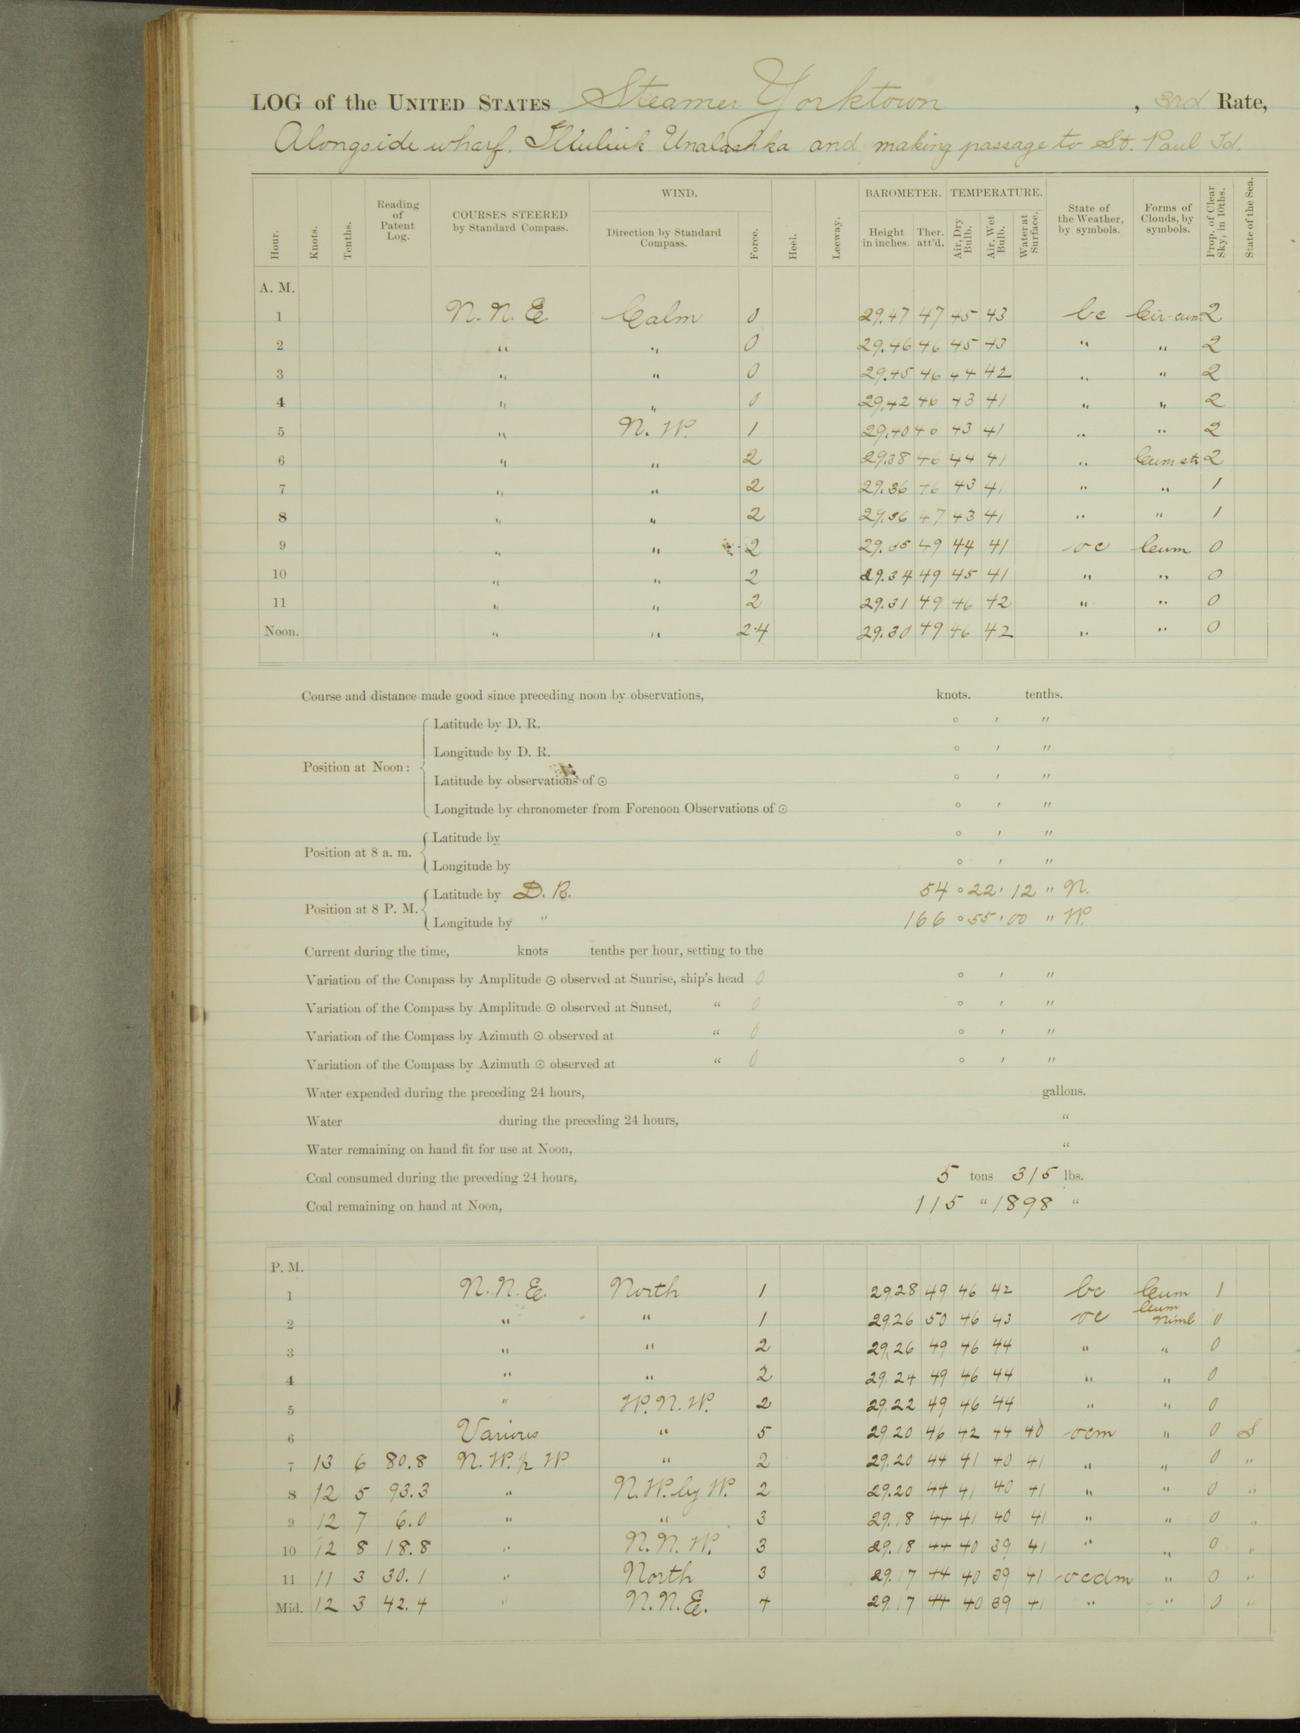 LOG of the UNITED STATES Steamer Yorktown, 3rd Rate,
Alongside wharf. Illuliuk Unalashka and making passage to St. Paul Id.
Hour. Knots. Tenths. Reading of Patent Log. COURSES STEERED by Standard Compass. WIND. Direction by Standard Compass. Force. Heel. Leeway. BAROMETER. Height in inches. Ther. att'd. TEMPERATURE. Air, Dry Bulb. Air, Wet Bulb. Water at Surface. State of the Weather, by symbols. Forms of Clouds, by symbols. Prop. of Clear Sky, in 10ths. State of the Sea.
A. M.
1 N. N. E. Calm 0 29.47 47 45 43 bc Cir-cum 2
2 " " 0 29.46 46 45 43 " " 2
3 " " 0 29.45 46 44 42 " " 2
4 " " 0 29.42 46 43 41 " " 2
5 " N. W. 1 29.40 46 43 41 " " 2
6 " " 2 29.38 46 44 41 " Cum str 2
7 " " 2 29.36 46 43 41 " " 1
8 " " 2 29.36 47 43 41 " " 1
9 " " 2 29.35 49 44 41 oc Cum 0
10 " " 2 29.34 49 45 41 " " 0
11 " " 2 29.31 49 46 42 " " 0
Noon. " " 2-4 29.30 49 46 42 " " 0
Course and distance made good since preceding noon by observations, knots. tenths.
Position at Noon:
Latitude by D. R. ° ' "
Longitude by D. R. ° ' "
Latitude by observations of ☉ ° ' "
Longitude by chronometer from Forenoon Observations of ☉ ° ' "
Position at 8 a. m.
Latitude by ° ' "
Longitude by ° ' "
Position at 8 P. M.
Latitude by D. R. 54 ° 22 ' 12 " N.
Longitude by " 166 ° 55 ' 00 " W.
Current during the time, knots tenths per hour, setting to the
Variation of the Compass by Amplitude ☉ observed at Sunrise, ship's head 0 ° ' "
Variation of the Compass by Amplitude ☉ observed at Sunset, " 0 ° ' "
Variation of the Compass by Azimuth ☉ observed at " 0 ° ' "
Variation of the Compass by Azimuth ☉ observed at " 0 ° ' "
Water expended during the preceding 24 hours, gallons.
Water during the preceding 24 hours, "
Water remaining on hand fit for use at Noon, "
Coal consumed during the preceding 24 hours, 5 tons 315 lbs.
Coal remaining on hand at Noon, 115 " 1898 "
P. M.
1 N. N. E. North 1 29.28 49 46 42 bc Cum 1
2 " " 1 29.26 50 46 43 oc Cum Nimb 0
3 " " 2 29.26 49 46 44 " " 0
4 " " 2 29.24 49 46 44 " " 0
5 " W. N. W. 2 29.22 49 46 44 " " 0
6 Various " 5 29.20 46 42 44 40 ocm " 0 S
7 13 6 80.8 N. W. ½ W. " 2 29.20 44 41 40 41 " " 0 "
8 12 5 93.3 " N. W. by W. 2 29.20 44 41 40 41 " " 0 "
9 12 7 6.0 " " 3 29.18 44 41 40 41 " " 0 "
10 12 8 18.8 " N. N. W. 3 29.18 44 40 39 41 " " 0 "
11 11 3 30.1 " North 3 29.17 44 40 39 41 ocdm " 0 "
Mid. 12 3 42.4 " N. N. E. 4 29.17 44 40 39 41 " " 0 "